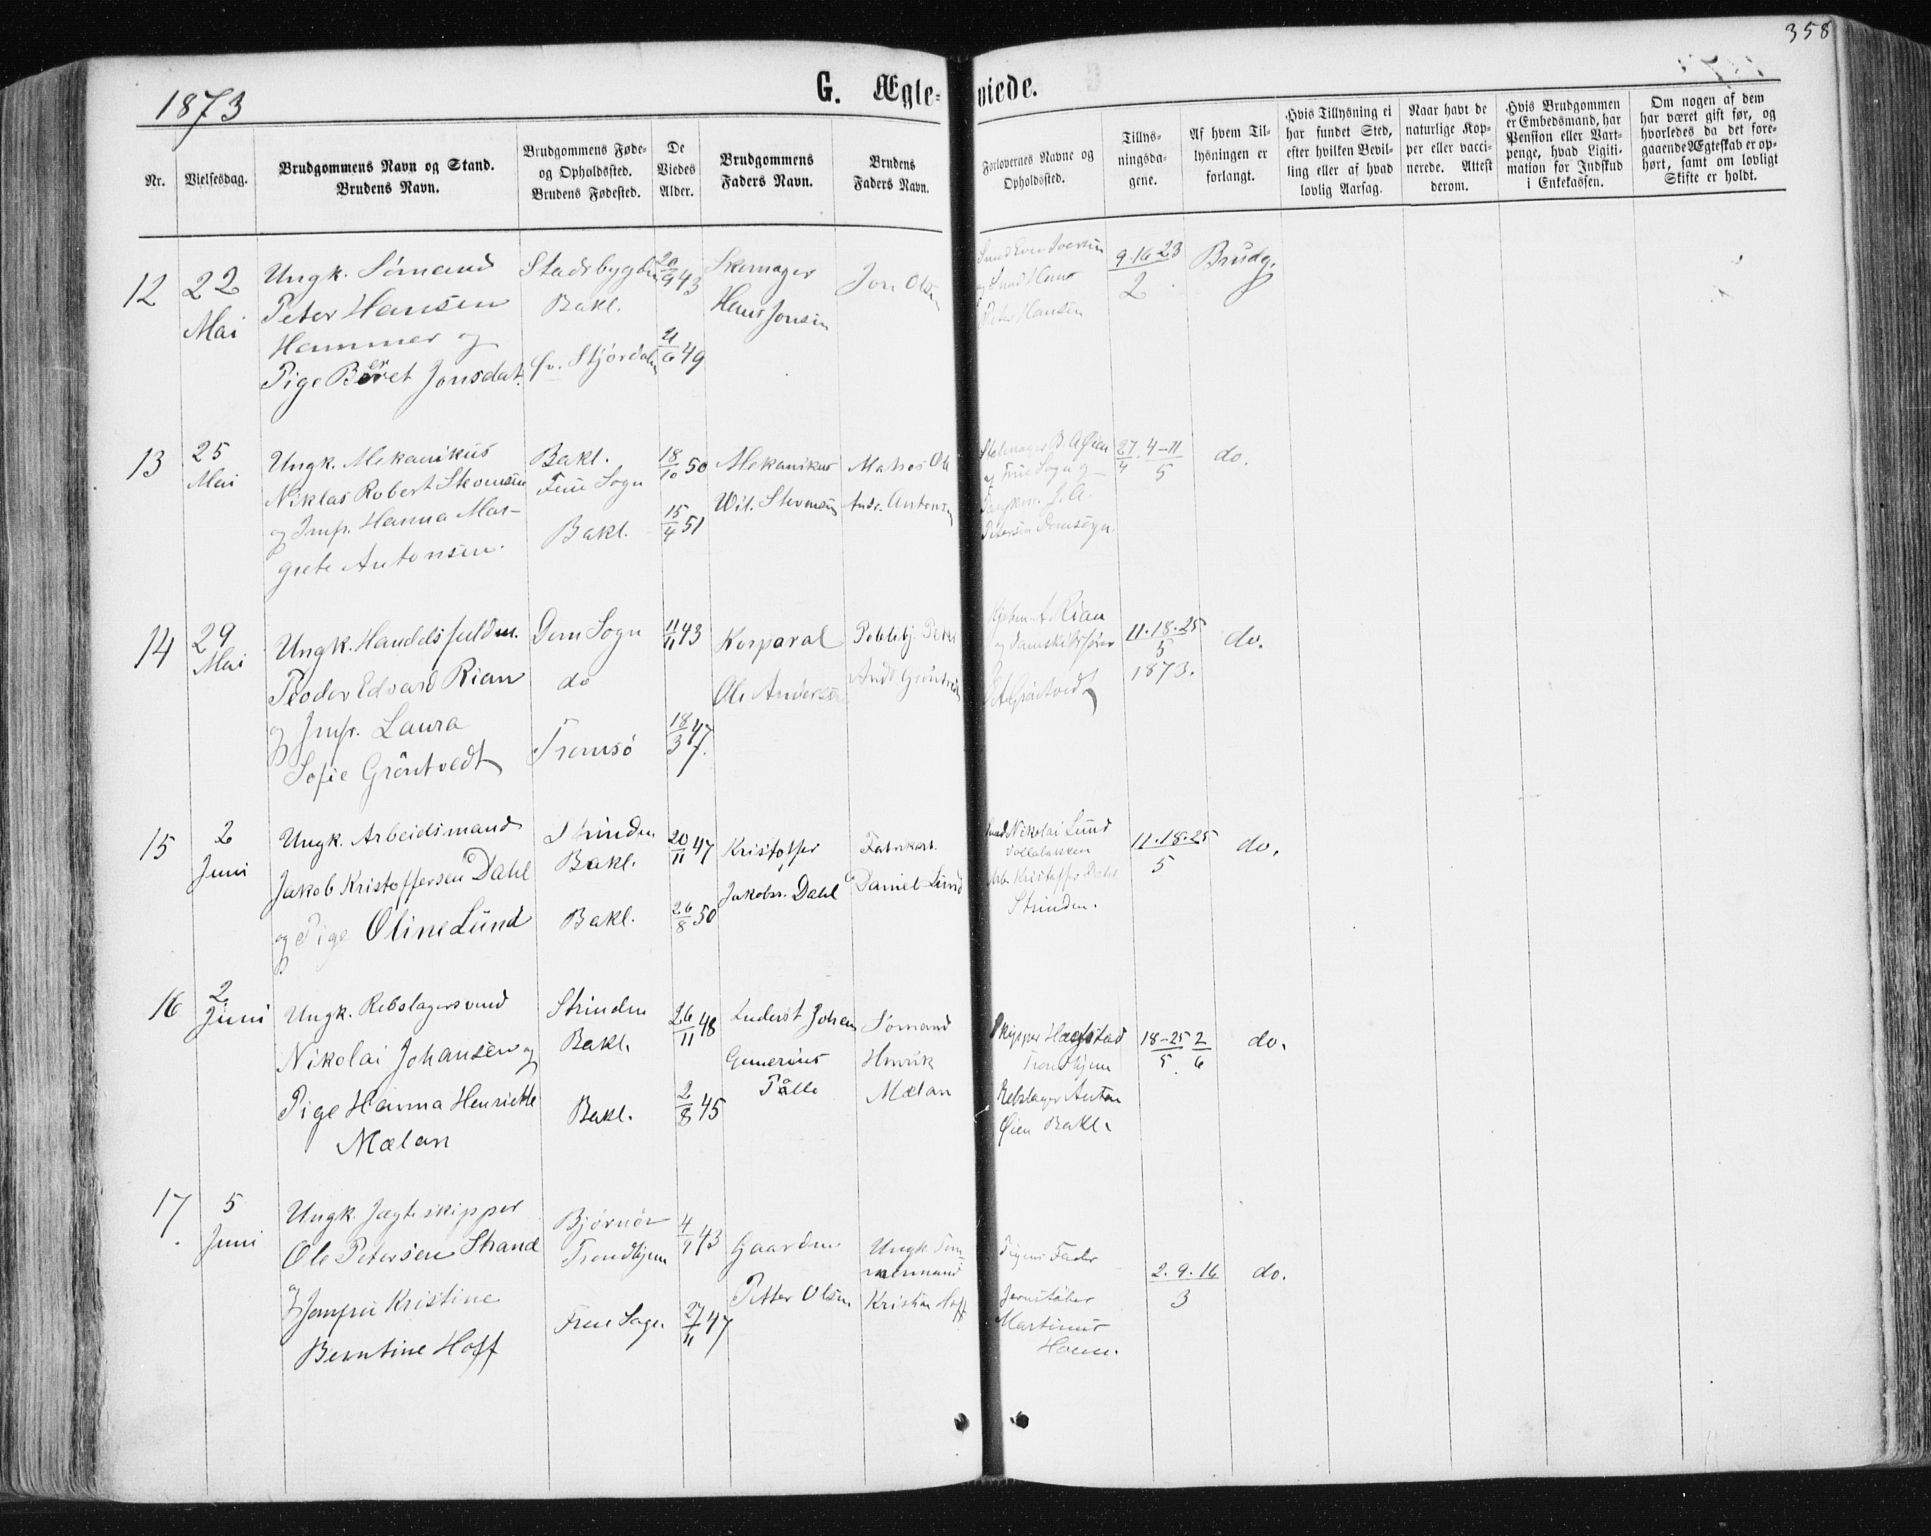 358
1873
G. Ægte-
viede.
Nr.
Vielsesdag.
Brudgommens Navn og Stand.
Brudens Navn.
Brudgommens Føde-
og Opholdssted.
Brudens Fødested.
De
Viedes
Alder.
Brudgommens
Faders Navn.
Brudens
Faders Navn.
Forlovernes Navne og
Opholdssted.
Tillys-
ningsda-
gene.
Af hvem Til-
lysningen er
forlangt.
Hvis Tillysning ei
har fundet Sted,
efter hvilken Bevil-
ling eller af hvad
lovlig Aarsag.
Naar havt de
naturlige Kop-
per eller vacci-
nerede. Attest
derom.
Hvis Brudgommen
er Embedsmand, har
Pension eller Vart-
penge, hvad Ligiti-
mation for Indskud
i Enkekassen.
Om nogen af dem
har været gift før, og
hvorledes da det fore-
gaaende Ægteskab er op-
hørt, samt om lovligt
Skifte er holdt.
12
22
Mai
Ungk. Sømand
Peter Hansen
Hammer og
Pige Beret Jonsdat.
Stadsbygden
Bakl.
Øv. Stjørdalen
20/9 43
21/6 49
Skomager
Hans Jonsen
Jon Olsen
Peter Hansen
9.16.23
2
Brudg.
13
25
Mai
Ungk. Mekanikus
Niklas Robert Stevensen
og Jmfr. Hanna Mar-
grete Antonsen.
Bakl.
Frue Sogn
Bakl.
18/10 50
15/4 51
Mekanikus
Wil. Stevensen
Matros Ole
Andr. Antonsen
B. A. Øien
Frue Sogn og
J. A.
Petersen Domsogn.
27/4. 4-11
5
do.
14
29
Mai
Ungk. Handelsfuldm.
Teodor Edvard Rian
og Jmfr. Laura
Sofie Gröntvedt
Dom Sogn
do
Tromsö
11/11 43
18/3 47.
Korporal
Ole Andersen
Gröntvedt
Rian
og
Gröntvedt
11.18.25
5
1873.
do.
15
2
Juni
Ungk. Arbeidsmand
Jakob Kristoffersen Dahl
og Pige Oline Lund
Strinden
Bakl.
Bakl.
20/11 47
26/8 50
Kristoffer
Jakobsn. Dahl
Daniel Lund
Nikolai Lund
Arb. Kristoffer Dahl
Strinden.
11.18.25
5
do.
16
2
Juni
Ungk. Rebslagersvend
Nikolai Johansen og
Pige Hanna Henriette
Mælan
Strinden
Bakl.
Bakl.
26/11 48
2/8 45
Johan
Gunerius
Pålle
Sömand
Henrik
Mælan
Skipper Hagstad
Trondhjem
Rebslager Anton
Øien Bakl.
18-25 2
5. 6
do.
17.
5
Juni
Ungk. Jægteskipper
Ole Petersen Strand
og Jomfru Kristine
Berntine Hoff
Bjørnør
Trondhjem
Frue Sogn
4/9 43
27/11 47
Gaardm
Petter Olsen
Ungk. Töm-
mermand
Kristian Hoff
Pigens Fader
Martinus
2.9.16
3
do.